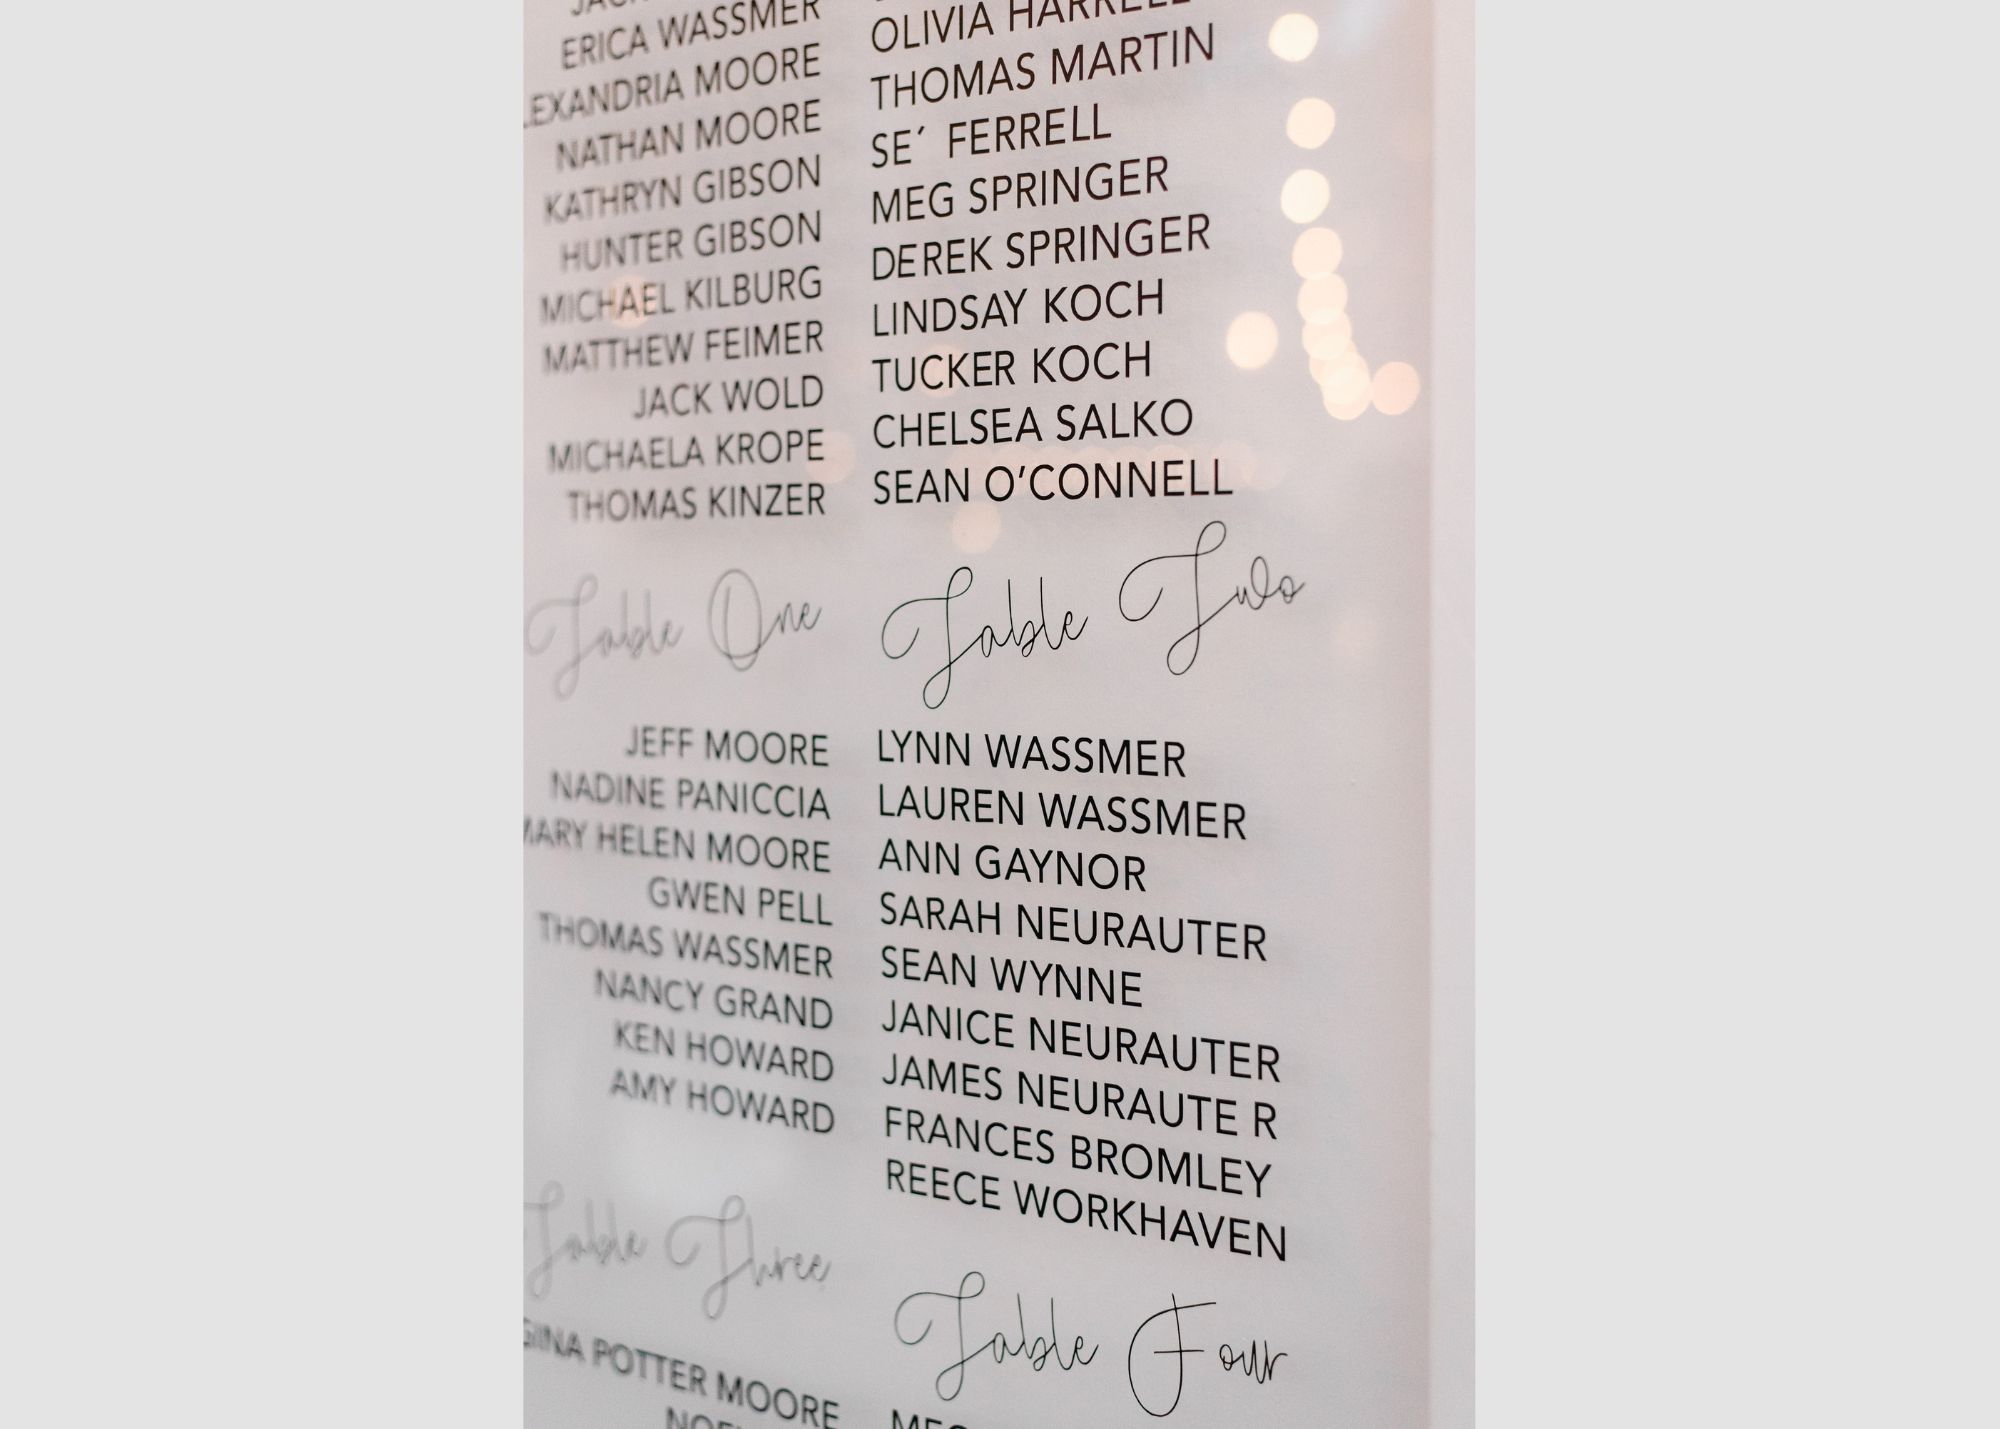 ERICA WASSMER
MOORE
NATHAN MOORE
KATHRYN GIBSON
HUNTER GIBSON
MICHAEL KILBURG
MATTHEW FEIMER
JACK WOLD
MICHAELA KROPE
THOMAS KINZER
OLIVIA HARRELL
THOMAS MARTIN
SE´ FERRELL
MEG SPRINGER
DEREK SPRINGER
LINDSAY KOCH
TUCKER KOCH
CHELSEA SALKO
SEAN O'CONNELL
Table One
JEFF MOORE
NADINE PANICCIA
MARY HELEN MOORE
GWEN PELL
THOMAS WASSMER
NANCY GRAND
KEN HOWARD
AMY HOWARD
Table Two
LYNN WASSMER
LAUREN WASSMER
ANN GAYNOR
SARAH NEURAUTER
SEAN WYNNE
JANICE NEURAUTER
JAMES NEURAUTE R
FRANCES BROMLEY
REECE WORKHAVEN
Table Three
POTTER MOORE
Table Four